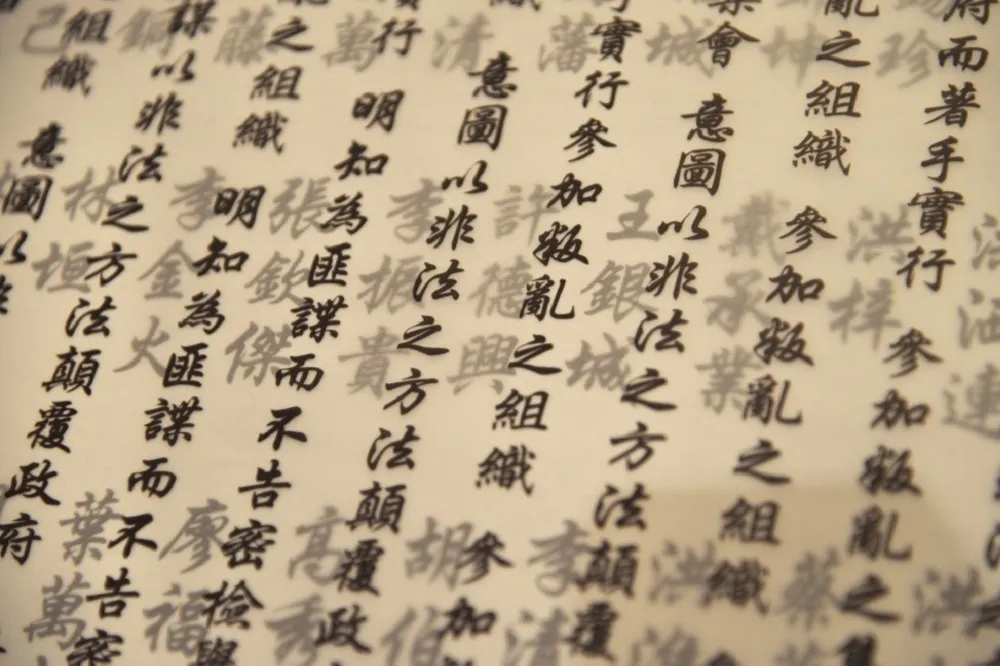 府而著手實行 參加叛亂之
亂之組織 參加叛亂之組織
會 意圖以非法之方法顛覆
實行參加叛亂之組織 參加
織 意圖以非法之方法顛覆政
行 明知為匪諜而不告密檢舉
之組織 明知為匪諜而不告密
諜以非法之方法顛覆政府
組織 意圖以非
珍
坤
城
藩
清
萬
藤
銅
己
連
洪梓
戴承業
王銀城
許德興
李振貴
張欽傑
李金火
林垣
洪
蔡
洪
李清
胡伯
高秀
廖福
葉萬